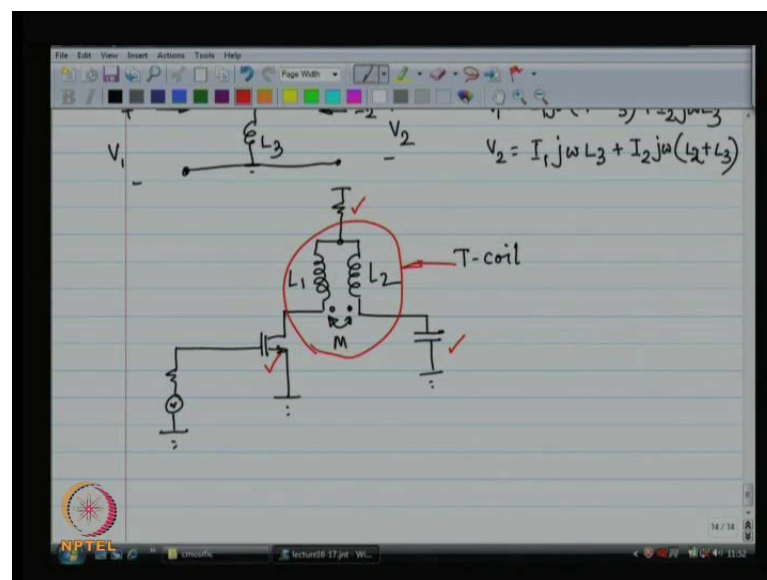 File Edit View Insert Actions Tools Help
Page Width
B I
L3
V1
-
V2
-
V2 = I1 jω L3 + I2 jω (L2 + L3)
L1
L2
T-coil
M
NPTEL
14 / 14
cmosific
lecture16-17.jnt - Wi...
11:52